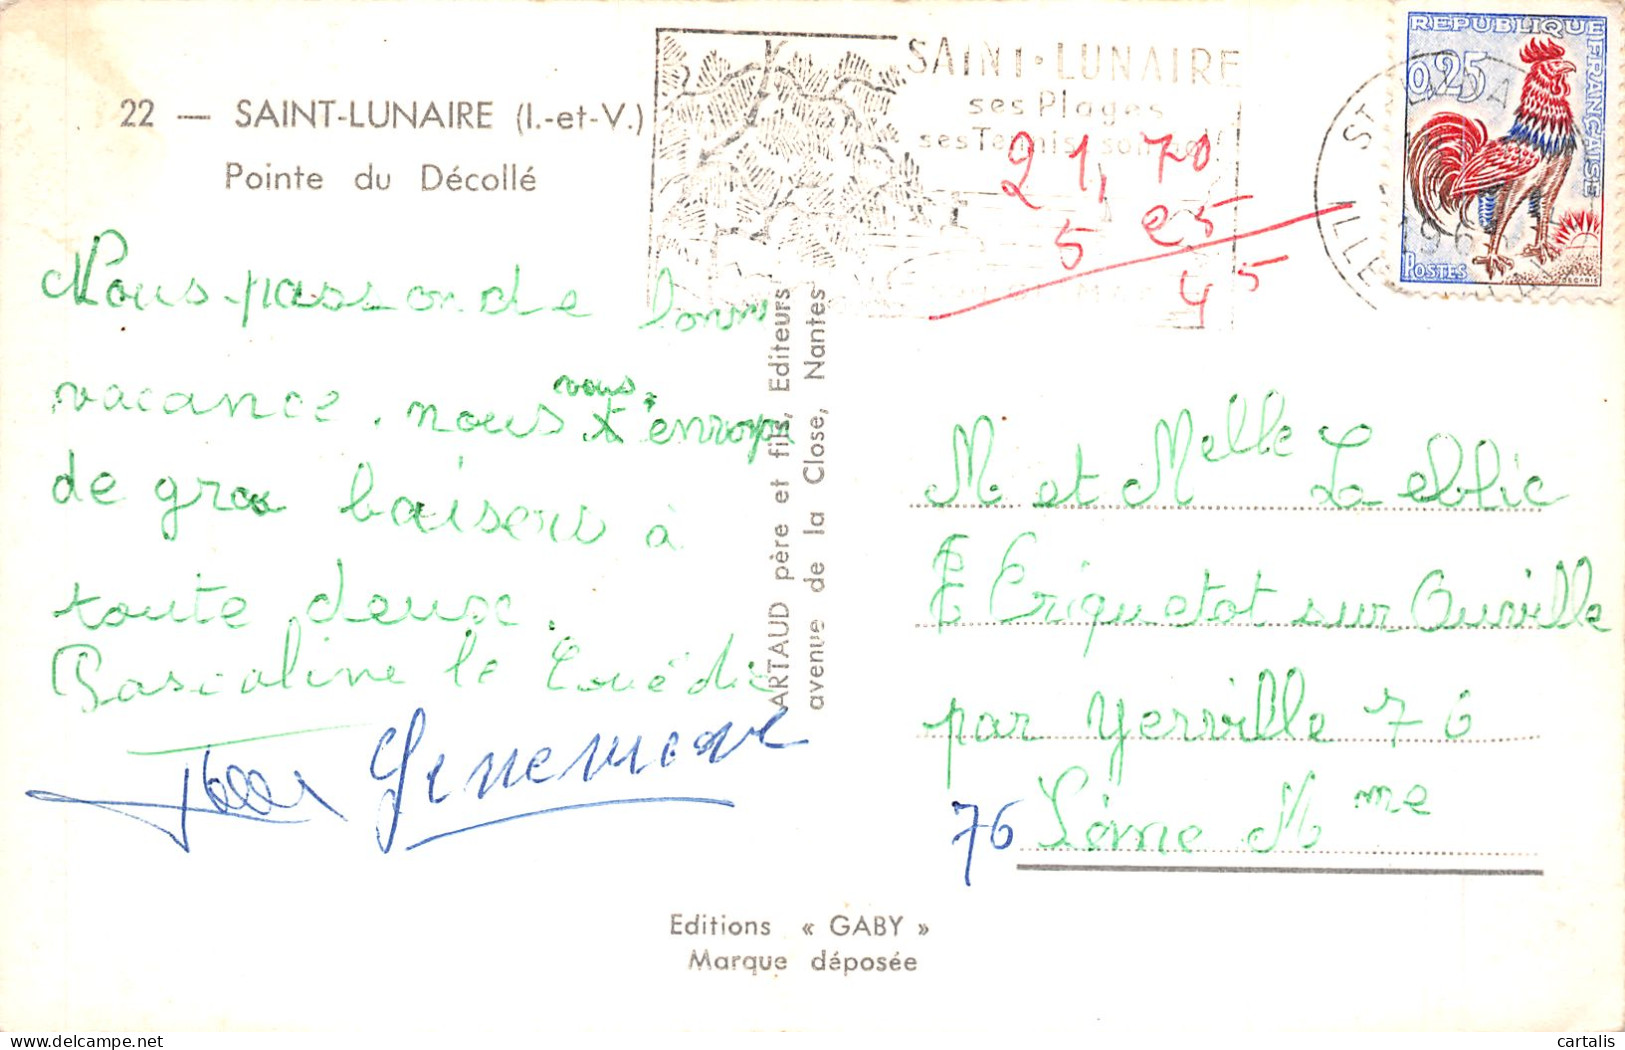 22 — SAINT-LUNAIRE (I.-et-V.)
Pointe du Décollé
SAINT-LUNAIRE
ses Plages
ses Tennis
REPUBLIQUE FRANÇAISE
0,25
POSTES
ST LUNAIRE
ILLE
21,70
5 25
45
Nous passon de bonn
vacance. nous vous envoya
de gros baisers à
toute deux.
Pascaline le
Genevieve
ARTAUD père et fils, Editeurs
avenue de la Close, Nantes
M et Melle Le eblic
Criquetot sur Ourville
par Yerville 76
76 Séine Mme
Editions « GABY »
Marque déposée
cartalis